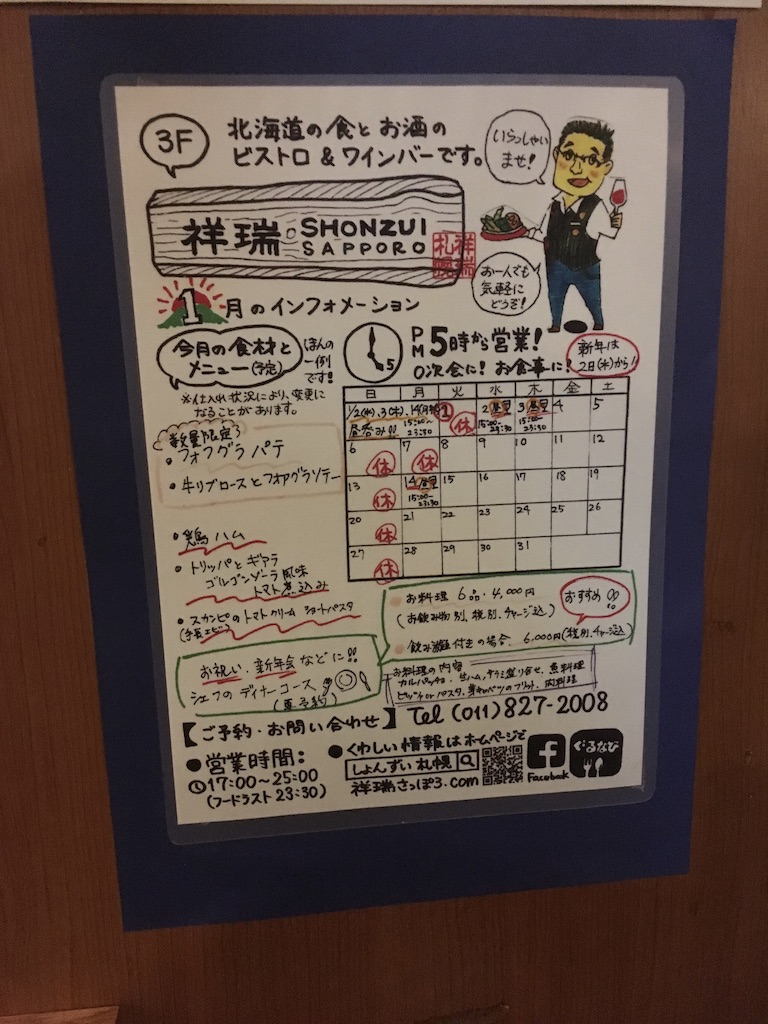 3F
北海道の食とお酒の
ビストロ&ワインバーです。
いらっしゃい
ませ!
祥瑞・SHONZUI
SAPPORO
祥瑞
札幌
お一人でも
気軽に
どうぞ!
1月のインフォメーション
今月の食材と
メニュー(予定)
ほんの
一例
です!
※仕入れ状況により、変更に
なることがあります。
5
PM5時から営業!
0次会に! お食事に!
新年は
2日(水)から!
数量限定
・フォアグラ パテ
・牛リブロースとフォアグラソテー
・鶏ハム
・トリッパとギアラ
ゴルゴンゾーラ風味
トマト煮込み
・スカンピのトマトクリーム ショートパスタ
(手長エビ)
日 月 火 水 木 金 土
1/2(水)、3(木)、14(月祝)
昼呑み!!
15:00~
23:30
1 休 2 昼呑 3 昼呑 4 5
15:00~
23:30
15:00~
23:30
6 休 7 休 8 9 10 11 12
13 休 14 昼呑 15 16 17 18 19
15:00~
23:30
20 休 21 22 23 24 25 26
27 休 28 29 30 31
・お料理 6品・4,000円
(お飲み物別、税別、チャージ込)
おすすめ!!
・飲み放題付きの場合 6,000円(税別、チャージ込)
お祝い・新年会などに!!
シェフのディナーコース
(要予約)
お料理の内容
カルパッチョ、生ハム、サラミ盛り合せ、魚料理
ピッツァorパスタ、芽キャベツのフリット、肉料理
【ご予約・お問い合わせ】 Tel (011)827-2008
●営業時間:
17:00~25:00
(フードラスト 23:30)
●くわしい情報はホームページで
しょんずい 札幌
祥瑞さっぽろ.com
f
Facebook
ぐるなび